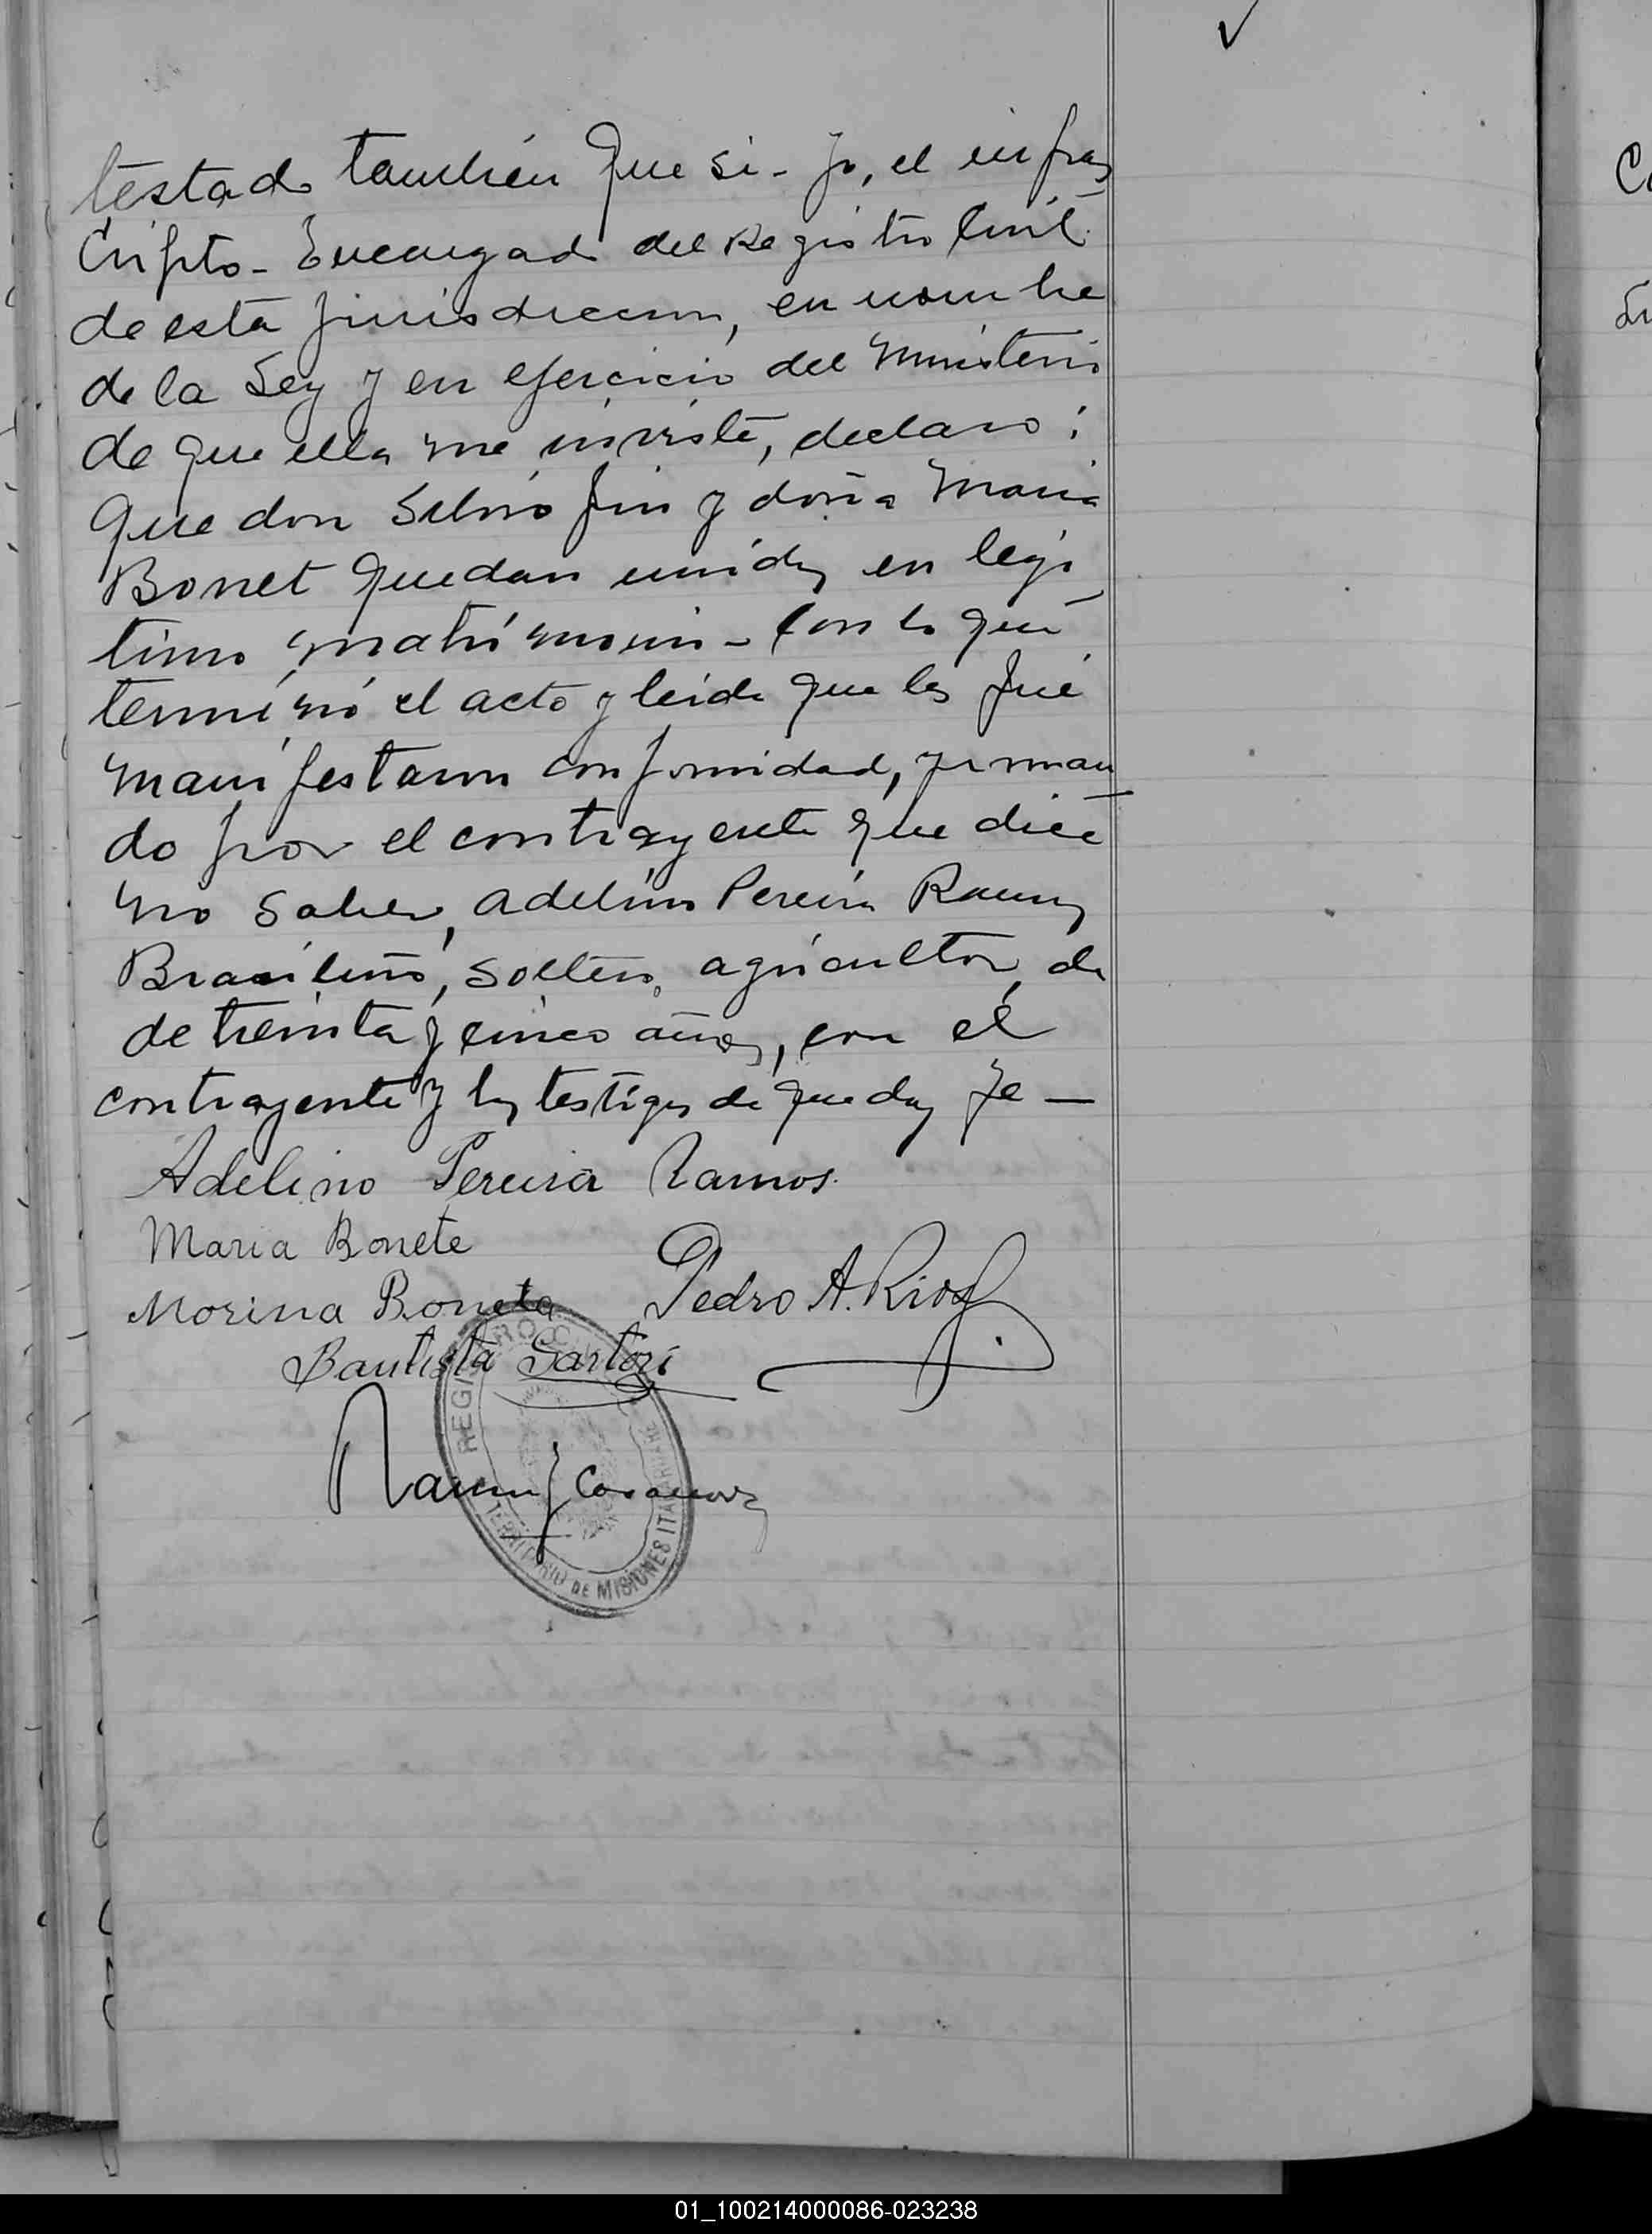 testado también que si - yo, el infras
cripto - Encargado del Registro Civil
de esta jurisdiccion, en nombre
de la Ley y en ejercicio del Ministerio
de que ella me inviste, declaro:
que don Silvio y doña Maria
Bonet quedan unidos en legi
timo matrimonio - Con lo que
terminó el acto y leida que les fué
manifestaron conformidad, firman
do por el contrayente que dice
no saber, Adelino Pereira Ramos
Brasileño, soltero, agricultor, de
de treinta y cinco años, con el
contrayente y los testigos de que doy fe —
Adelino Pereira Ramos.
Maria Bonete
Morina Boneta Pedro A. Rios
Bautista Sartori
Ramon Casanova
REGISTRO CIVIL
TERRITORIO DE MISIONES ITACARUARE
✓
01_100214000086-023238